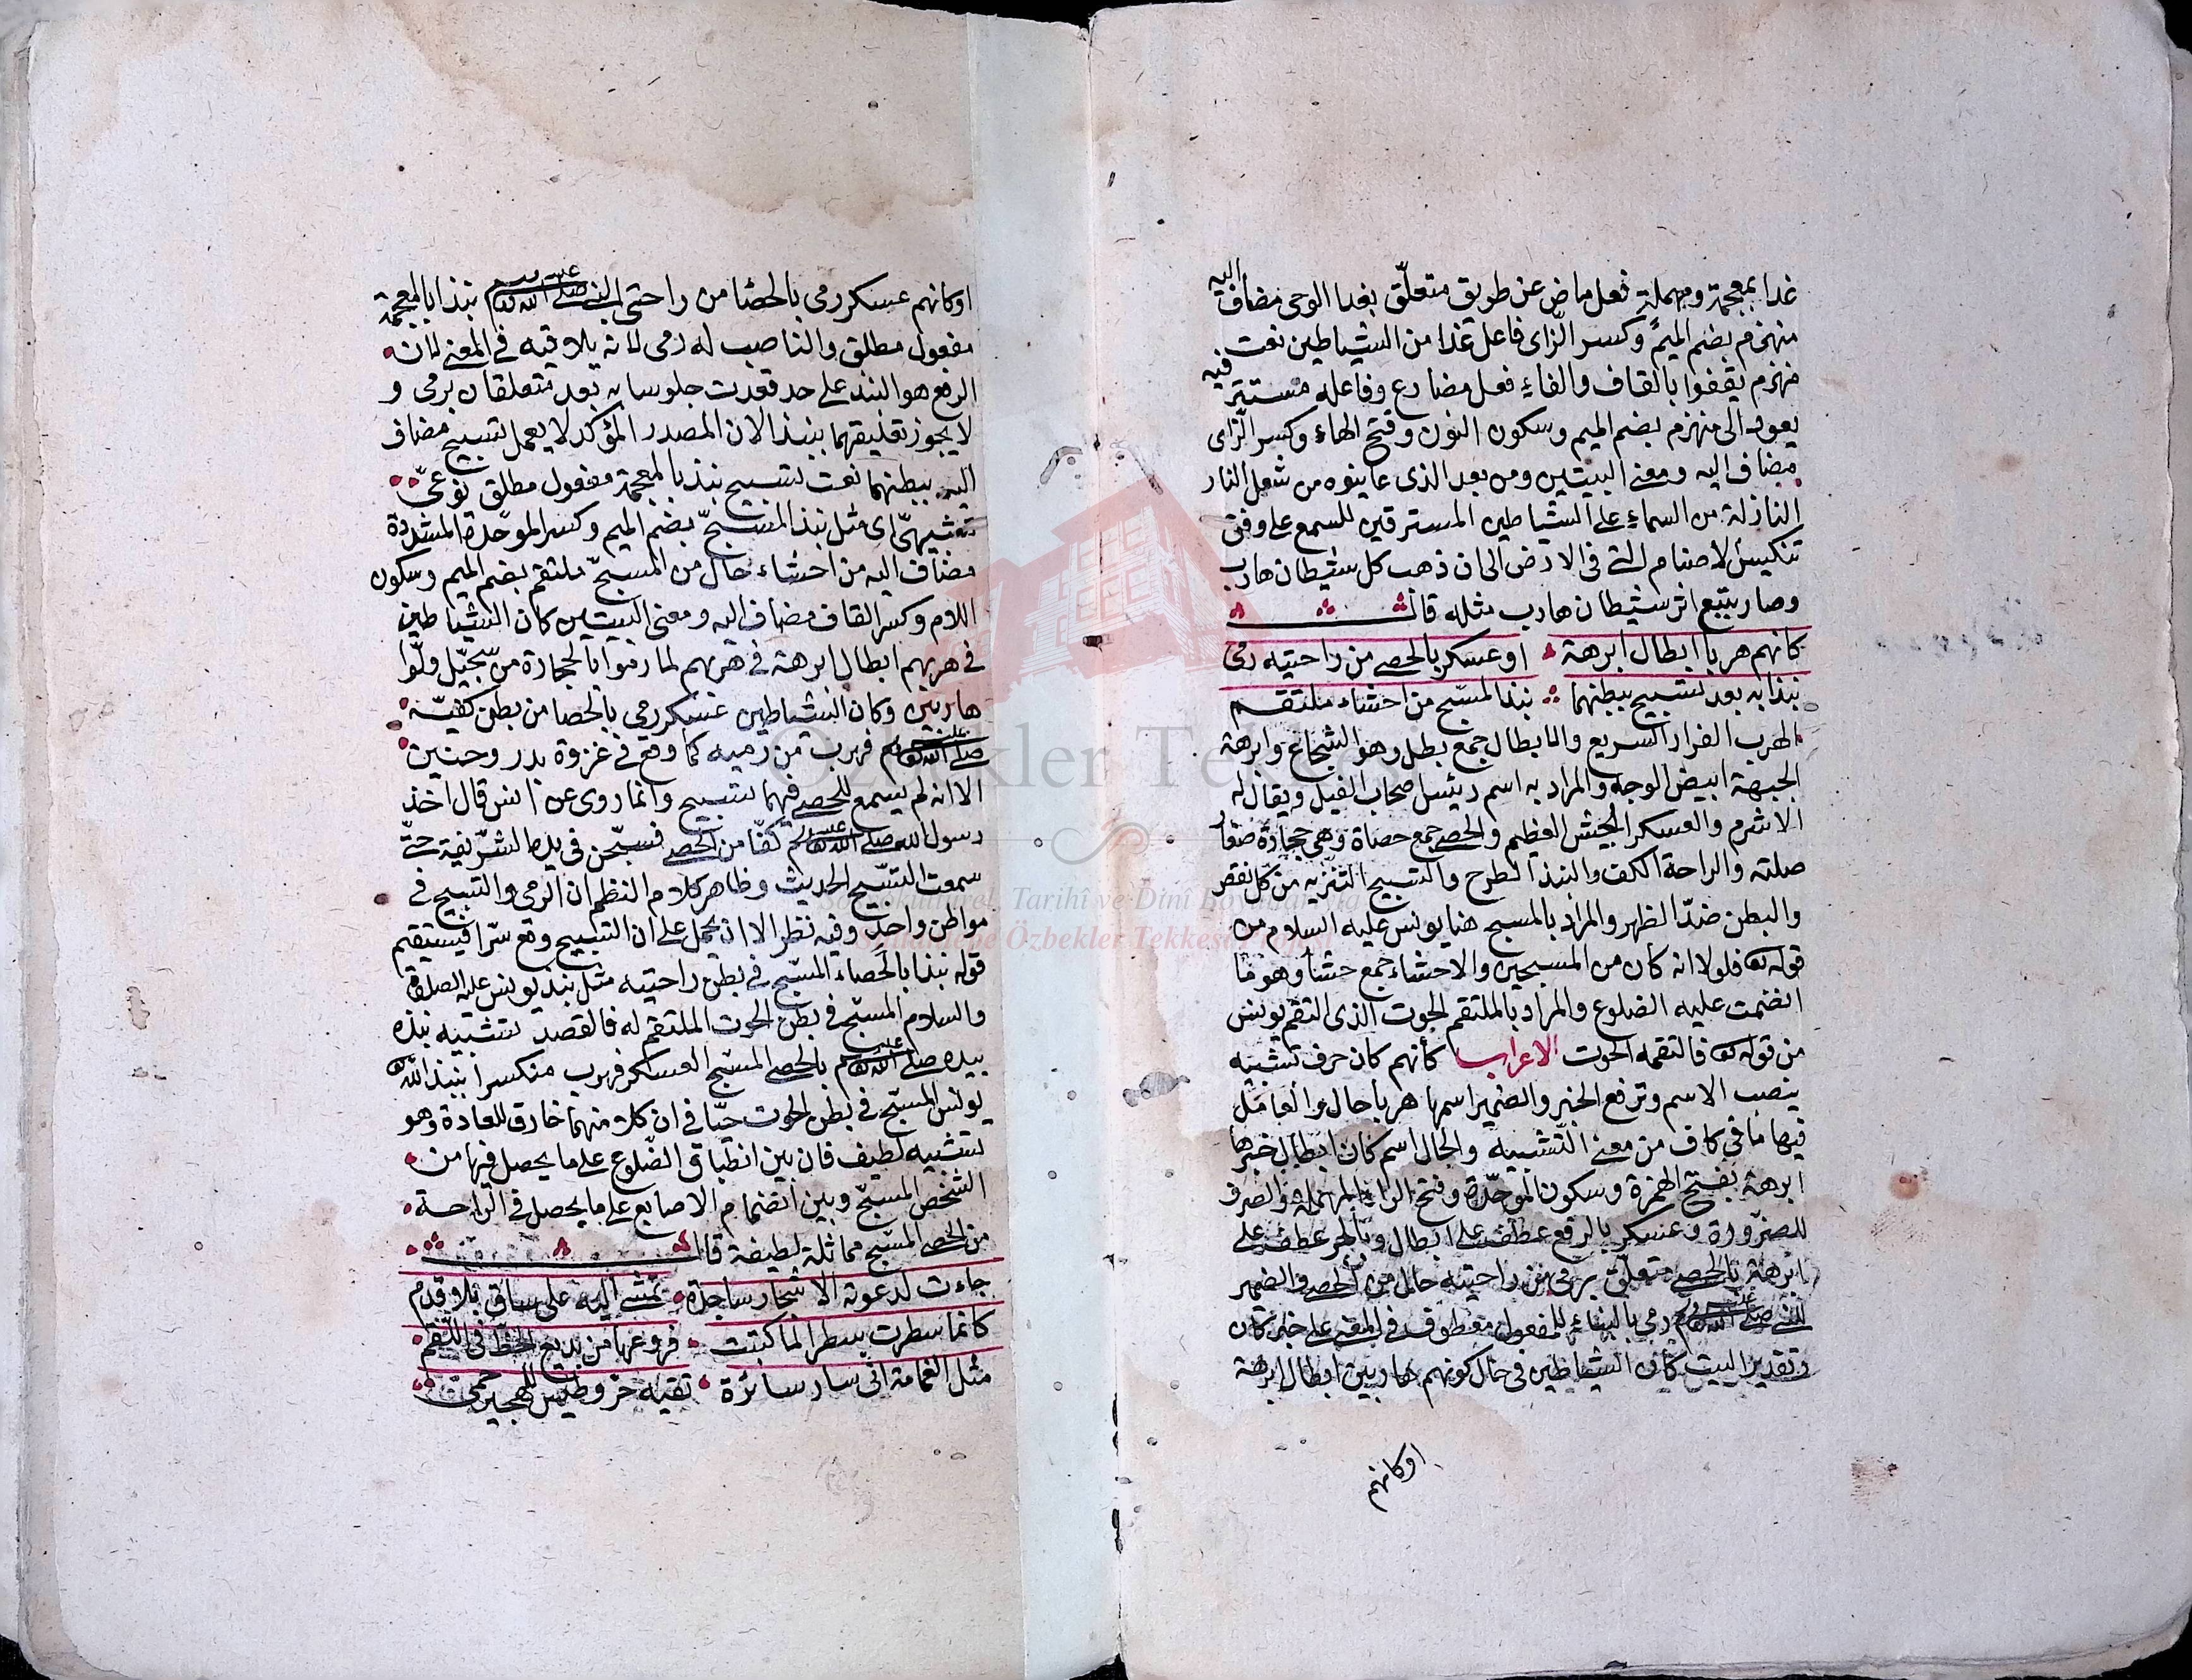 غدا بمعجمة ومهملة فعل ماض عن طريق متعلّق بغدا الوحى مضاف اليه
منهزم بضم الميم وكسر الزاى فاعل غدا من الشياطين نعت
منهزم يقفوا بالقاف والفاء فعل مضارع وفاعله مستتر فيه
يعود الى منهزم بضم الميم وسكون النون وفتح الهاء وكسر الزاى
مضاف اليه ومعنى البيتين ومن بعد الذى عاينوه من شعل النار
النازلة من السماء على الشياطين المسترقين للسمع على وفق
تنكيس الاصنام التى فى الارض الى ان ذهب كل شيطان هارب
وصار يتبع اثر شيطان هارب مثله قال
كانهم هربا ابطال ابرهة او عسكر بالحصى من راحتيه رمى
نبذا به بعد تسبيح ببطنهما نبذ المسبّح من احشاء ملتقم
الهرب الفرار السريع والابطال جمع بطل وهو الشجاع وابرهة
الجبهة ابيض الوجه والمراد به اسم رئيس اصحاب الفيل ويقال له
الاشرم والعسكر الجيش العظيم والحصى جمع حصاة وهى حجارة صغار
صلتة والراحة الكف والنبذ الطرح والتسبيح التنزيه من كل نقص
والبطن ضدّ الظهر والمراد بالمسبح هنا يونس عليه السلام من
قوله تع فلولا انه كان من المسبحين والاحشاء جمع حشا وهو ما
انضمت عليه الضلوع والمراد بالملتقم الحوت الذى التقم يونس
من قوله تع فالتقمه الحوت الاعراب كأنهم كان حرف تشبيه
ينصب الاسم وترفع الخبر والضمير اسمها هربا حال والعامل
فيها ما فى كاف من معنى التشبيه والحال اسم كان ابطال خبرها
ابرهة بفتح الهمزة وسكون الموحّدة وفتح الراء المهملة والصرف
للضرورة وعسكر بالرفع عطف على ابطال وبالجر عطف على
ابرهة بالحصى متعلّق برمى من راحتيه حال من الحصى والضمير
للنبى صلى الله عليه وسلم رمى بالبناء للمفعول معطوف فى المعنى على خبر كان
وتقدير البيت كأن الشياطين فى حال كونهم هاربين ابطال ابرهة
اوكانهم
اوكانهم عسكر رمى بالحصا من راحتى النبى صلى الله عليه وسلم نبذا بالمعجمة
مفعول مطلق والناصب له رمى لانه يلاقيه فى المعنى لان
الرمى هو النبذ على حد قعدت جلوسا به بعد متعلقان برمى و
لا يجوز تعليقهما بنبذا لان المصدر المؤكد لا يعمل تسبيح مضاف
اليه ببطنهما نعت لتسبيح نبذ بالمعجمة مفعول مطلق نوعىّ
تشبيهىّ اى مثل نبذ المسبحّ بضم الميم وكسر الموحّدة المشددة
مضاف اليه من احشاء حال من المسبحّ ملتقم بضم الميم وسكون
اللام وكسر القاف مضاف اليه ومعنى البيتين كان الشياطين
فى هربهم ابطال ابرهة فى هربهم لما رموا بالحجارة من سجّيل ولّوا
هاربين وكان الشياطين عسكر رمى بالحصا من بطن كفيّه
صلى الله عليه وسلم فهرب من رميه كما وقع فى غزوة بدر وحنين
الا انه لم يسمع للحصى فيهما تسبيح وانما روى عن انس قال اخذ
رسول الله صلى الله عليه وسلم كفّا من الحصى فسبّحن فى يده الشريفة حتّى
سمعت التسبيح الحديث وظاهر كلام النظم ان الرمى والتسبيح فى
مواطن واحد وفيه نظر الا ان يحمل على ان التسبيح وقع سّرا فيستقيم
قوله نبذا بالحصاء المسّبح فى بطن راحتيه مثل نبذ يونس عليه الصلوة
والسلام المسبّح فى بطن الحوت الملتقم له فالقصد تشبيه نبذه
بيده صلى الله عليه وسلم بالحصى المسّبح العساكر فهرب منكسرا بنبذ الله تع
يونس المسبّح فى بطن الحوت حيّا فى ان كلا منهما خارق للعادة وهو
تشبيه لطيف فان بين انطباق الضّلوع على ما يحصل فيها من
الشخص المسبّح وبين انضمام الاصابع على ما يحصل فى الرّاحة
من الحصى المسّبح مماثلة لطيفة قال
جاءت لدعوته الاشجار ساجدة تمشى اليه على ساق بلا قدم
كانما سطرت سطرا لما كتبت فروعها من بديع الخطّ فى اللّقم
مثل الغمامة انى سار سائرة تقيه حرّ وطيس للهجير حمى